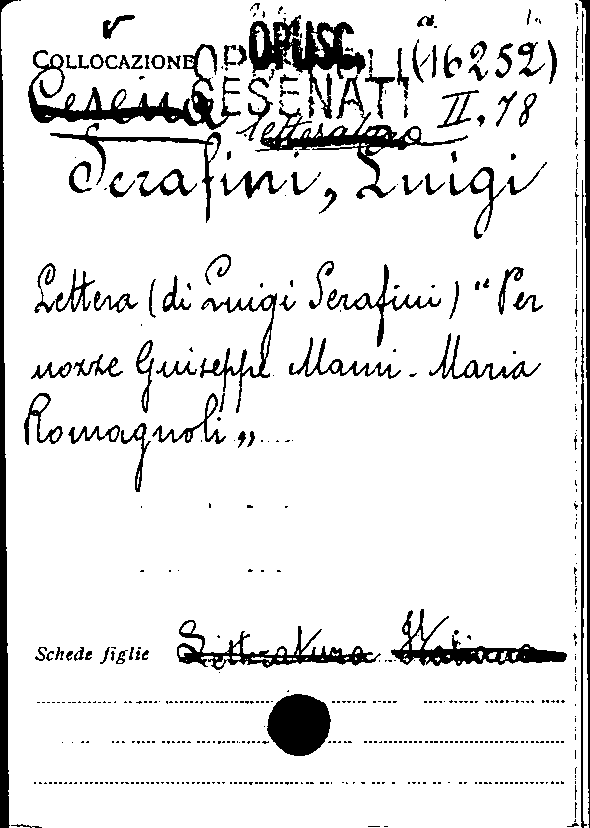 COLLOCAZIONE OPUSCOLI OPUSC. (16252)
Cesena CESENATI II. 78
letteratura
Serafini, Luigi
Lettera (di Luigi Serafini) "Per
nozze Guiseppe Mami - Maria
Romagnoli"
Schede figlie Letteratura Italiana